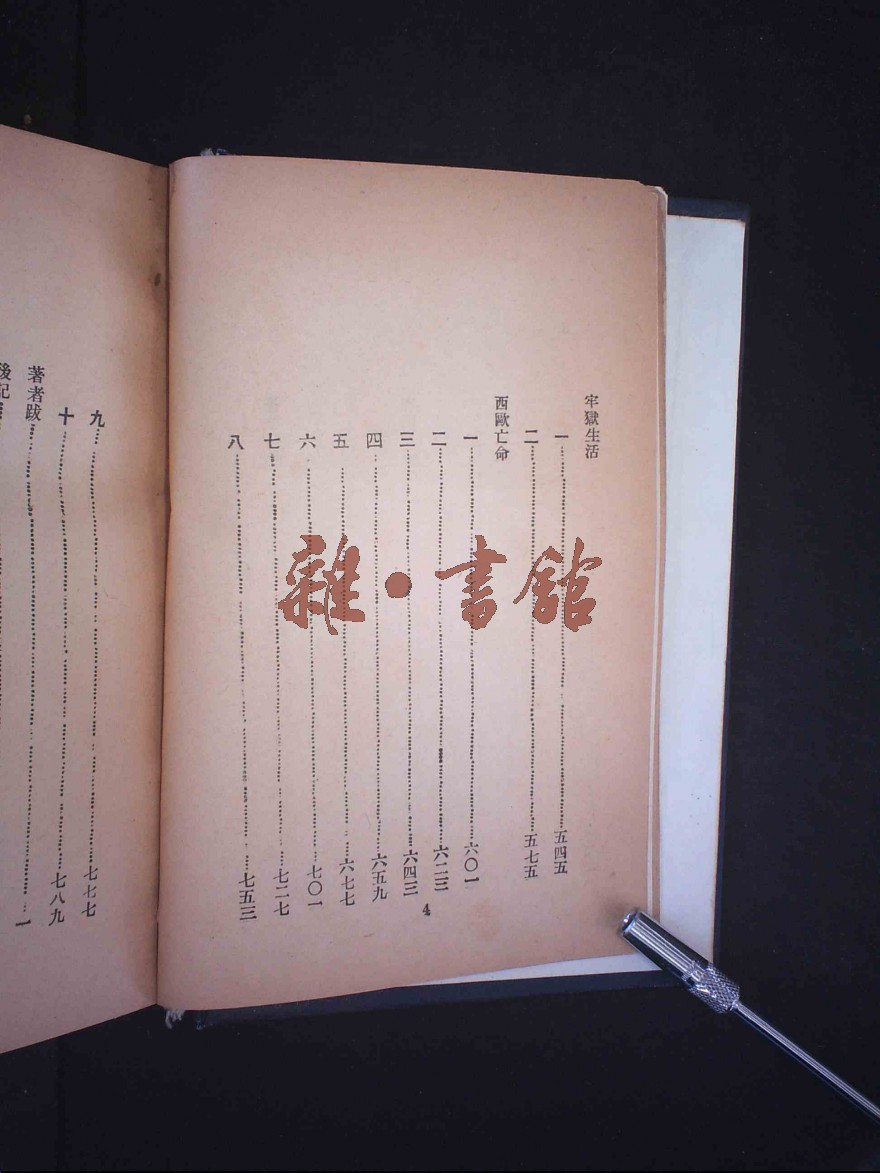 牢獄生活
一……五四五
二……五七五
西歐亡命
一……六〇一
二……六二三
三……六四三
四……六五九
五……六七七
六……七〇一
七……七二七
八……七五三
4
九……七七七
十……七八九
著者跋……一
後記
雜·書館